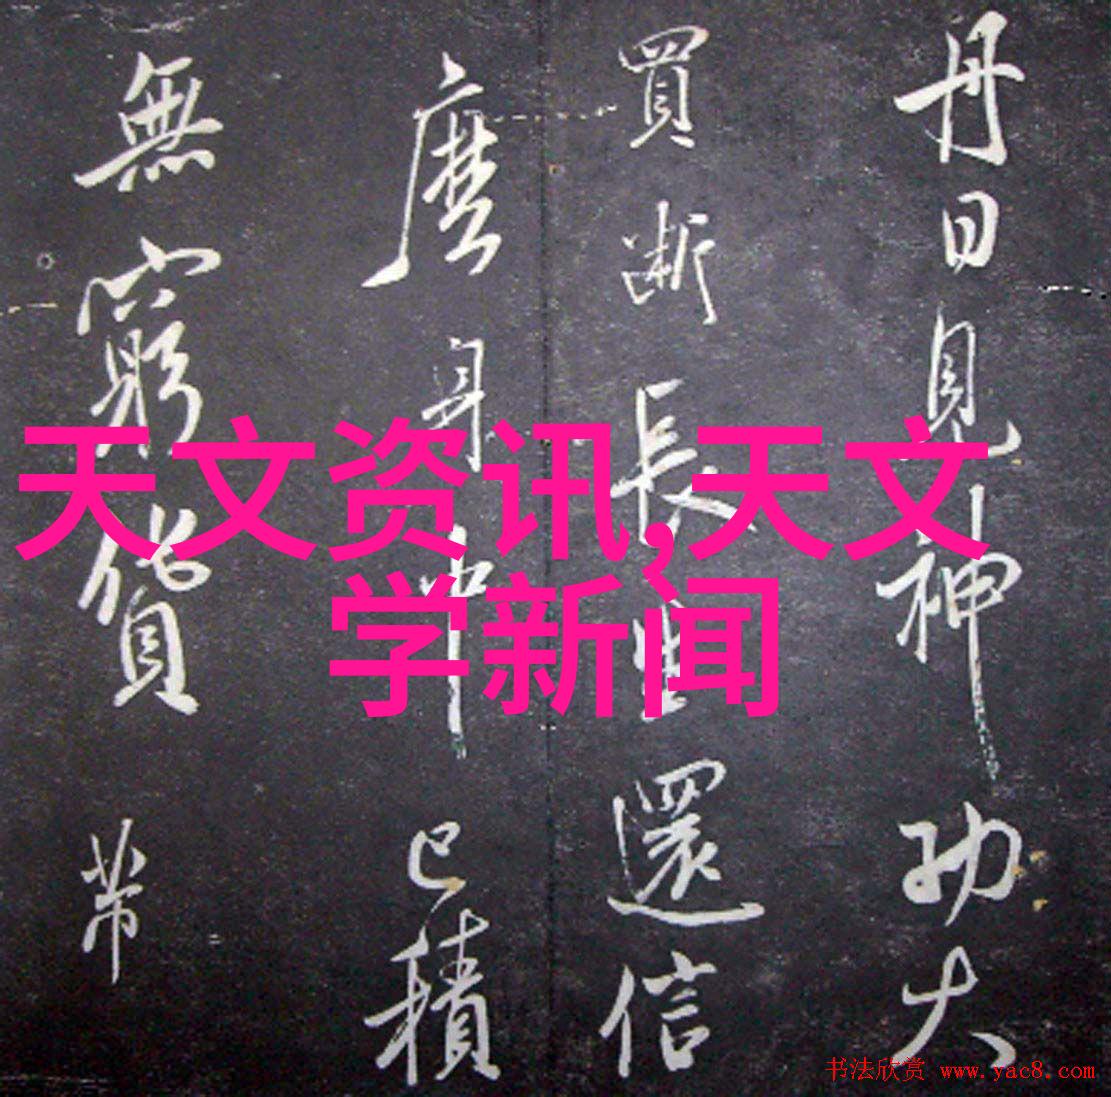 丹日見神功大
買斷長生還信
麿身中已積
無窮貨带
天文资讯,天文
学新闻
书法欣赏 www.yac8.com